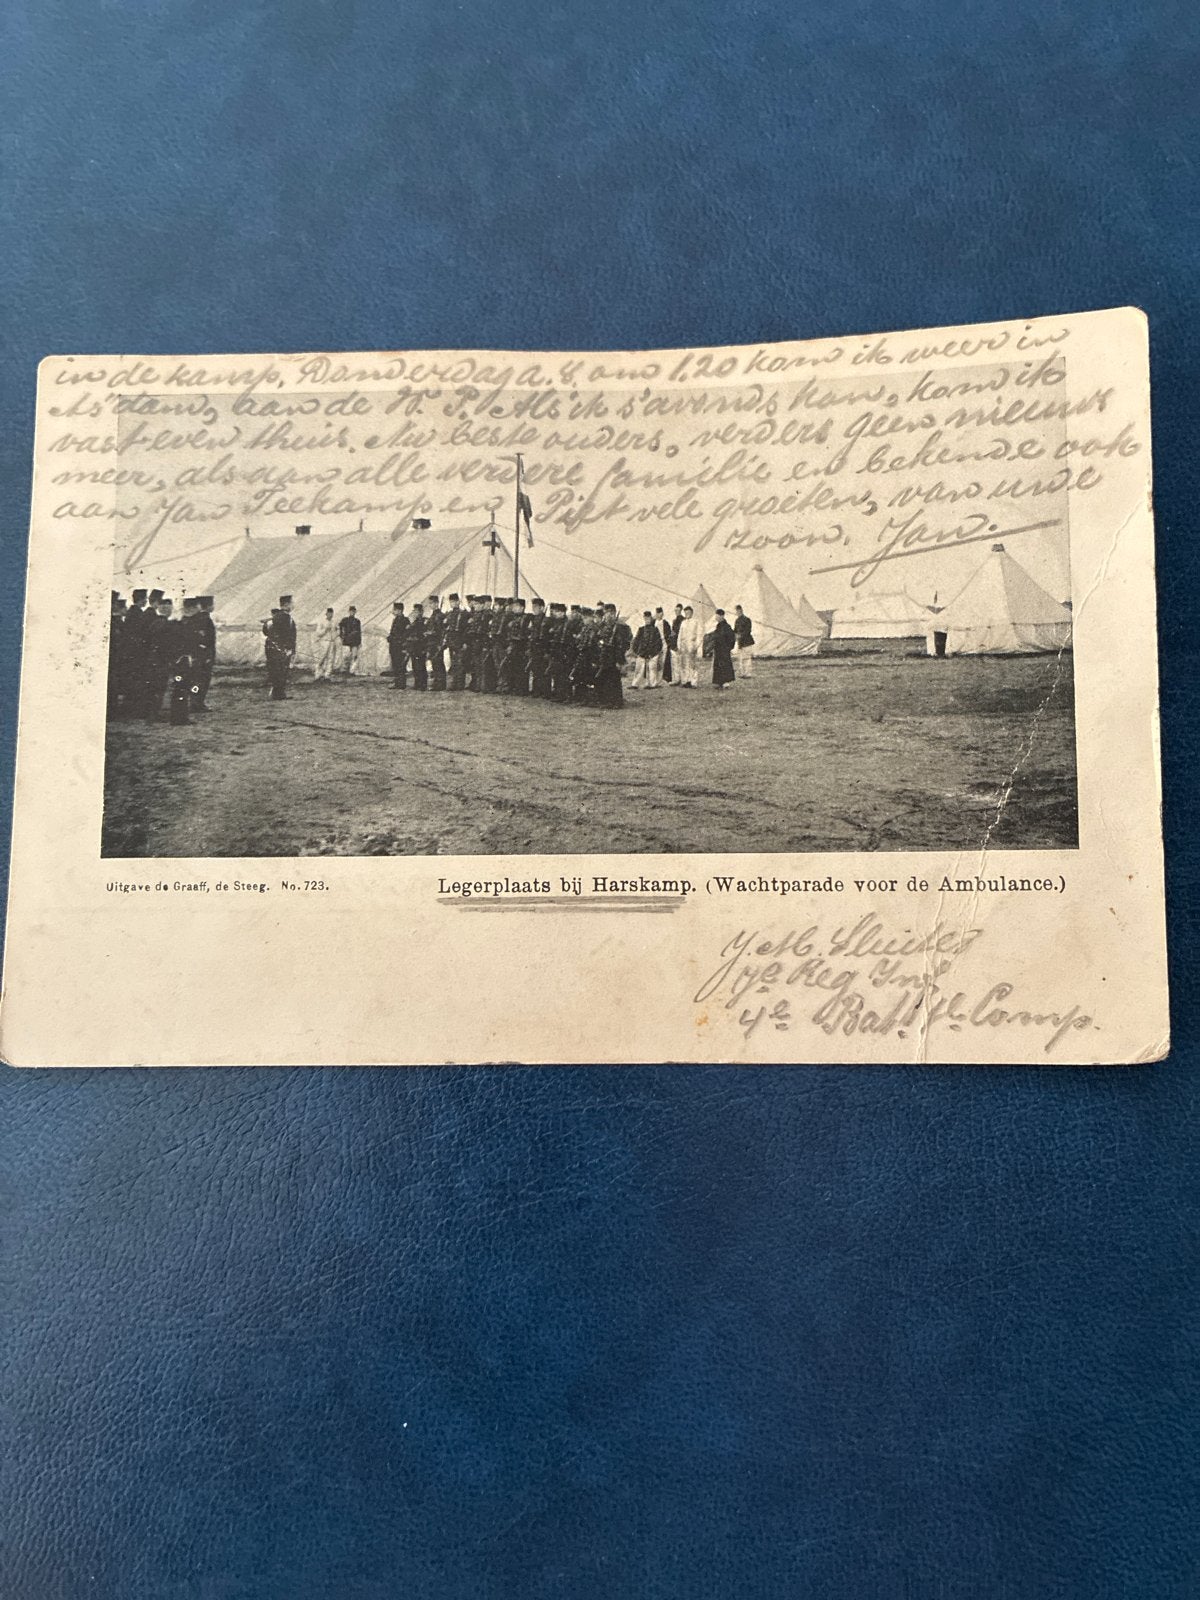 in de kamp. Donderdag a.s. om 1.20 kom ik weer in
As'dam, aan de W. P. Als ik s'avonds kan, kom ik
vast even thuis. Nu beste ouders, verders geen nieuws
meer, als aan alle verdere familie en bekende ook
aan Jan Teekamp en Piet vele groeten, van uwe
zoon. Jan.
Uitgave de Graaff, de Steeg. No. 723.
Legerplaats bij Harskamp. (Wachtparade voor de Ambulance.)
J. M. Sluiter
7e Reg Inf
4e Bat. Comp.